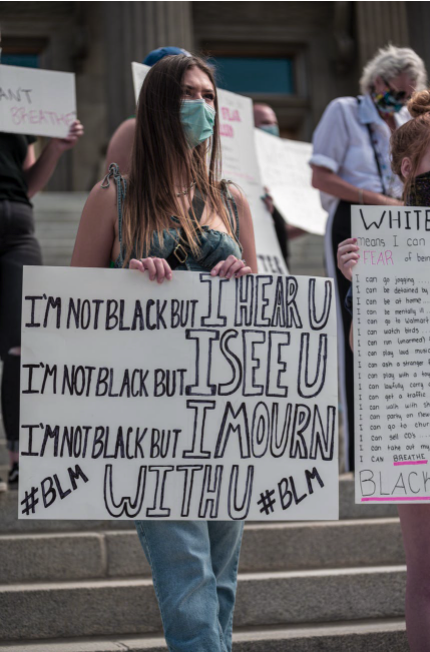 BREATHE
I'M NOT BLACK BUT I HEAR U
I'M NOT BLACK BUT I SEE U
I'M NOT BLACK BUT I MOURN
WITH U
#BLM
#BLM
WHITE
means I can
FEAR of bein
I can go jogging
I can be detained by
I can be at home
I can be mentally il
I can go to Walmart
I can watch birds
I can run (unarmed)
I can play loud music
I can ask a stranger f
I can play with a toy
I can lawfully carry
I can get a traffic
I can walk with sk
I can party on new
I can go to chur
I can sell CD's
I can take out my
I CAN BREATHE
BLACK